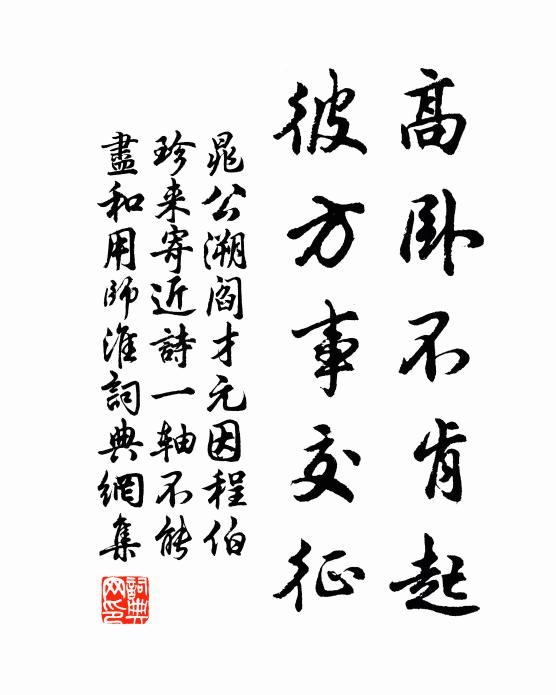 高卧不肯起
彼方事交征
晁公溯阎才元因程伯
珍来寄近詩一轴不能
盡和用師淮詞典網集
詞典
网印